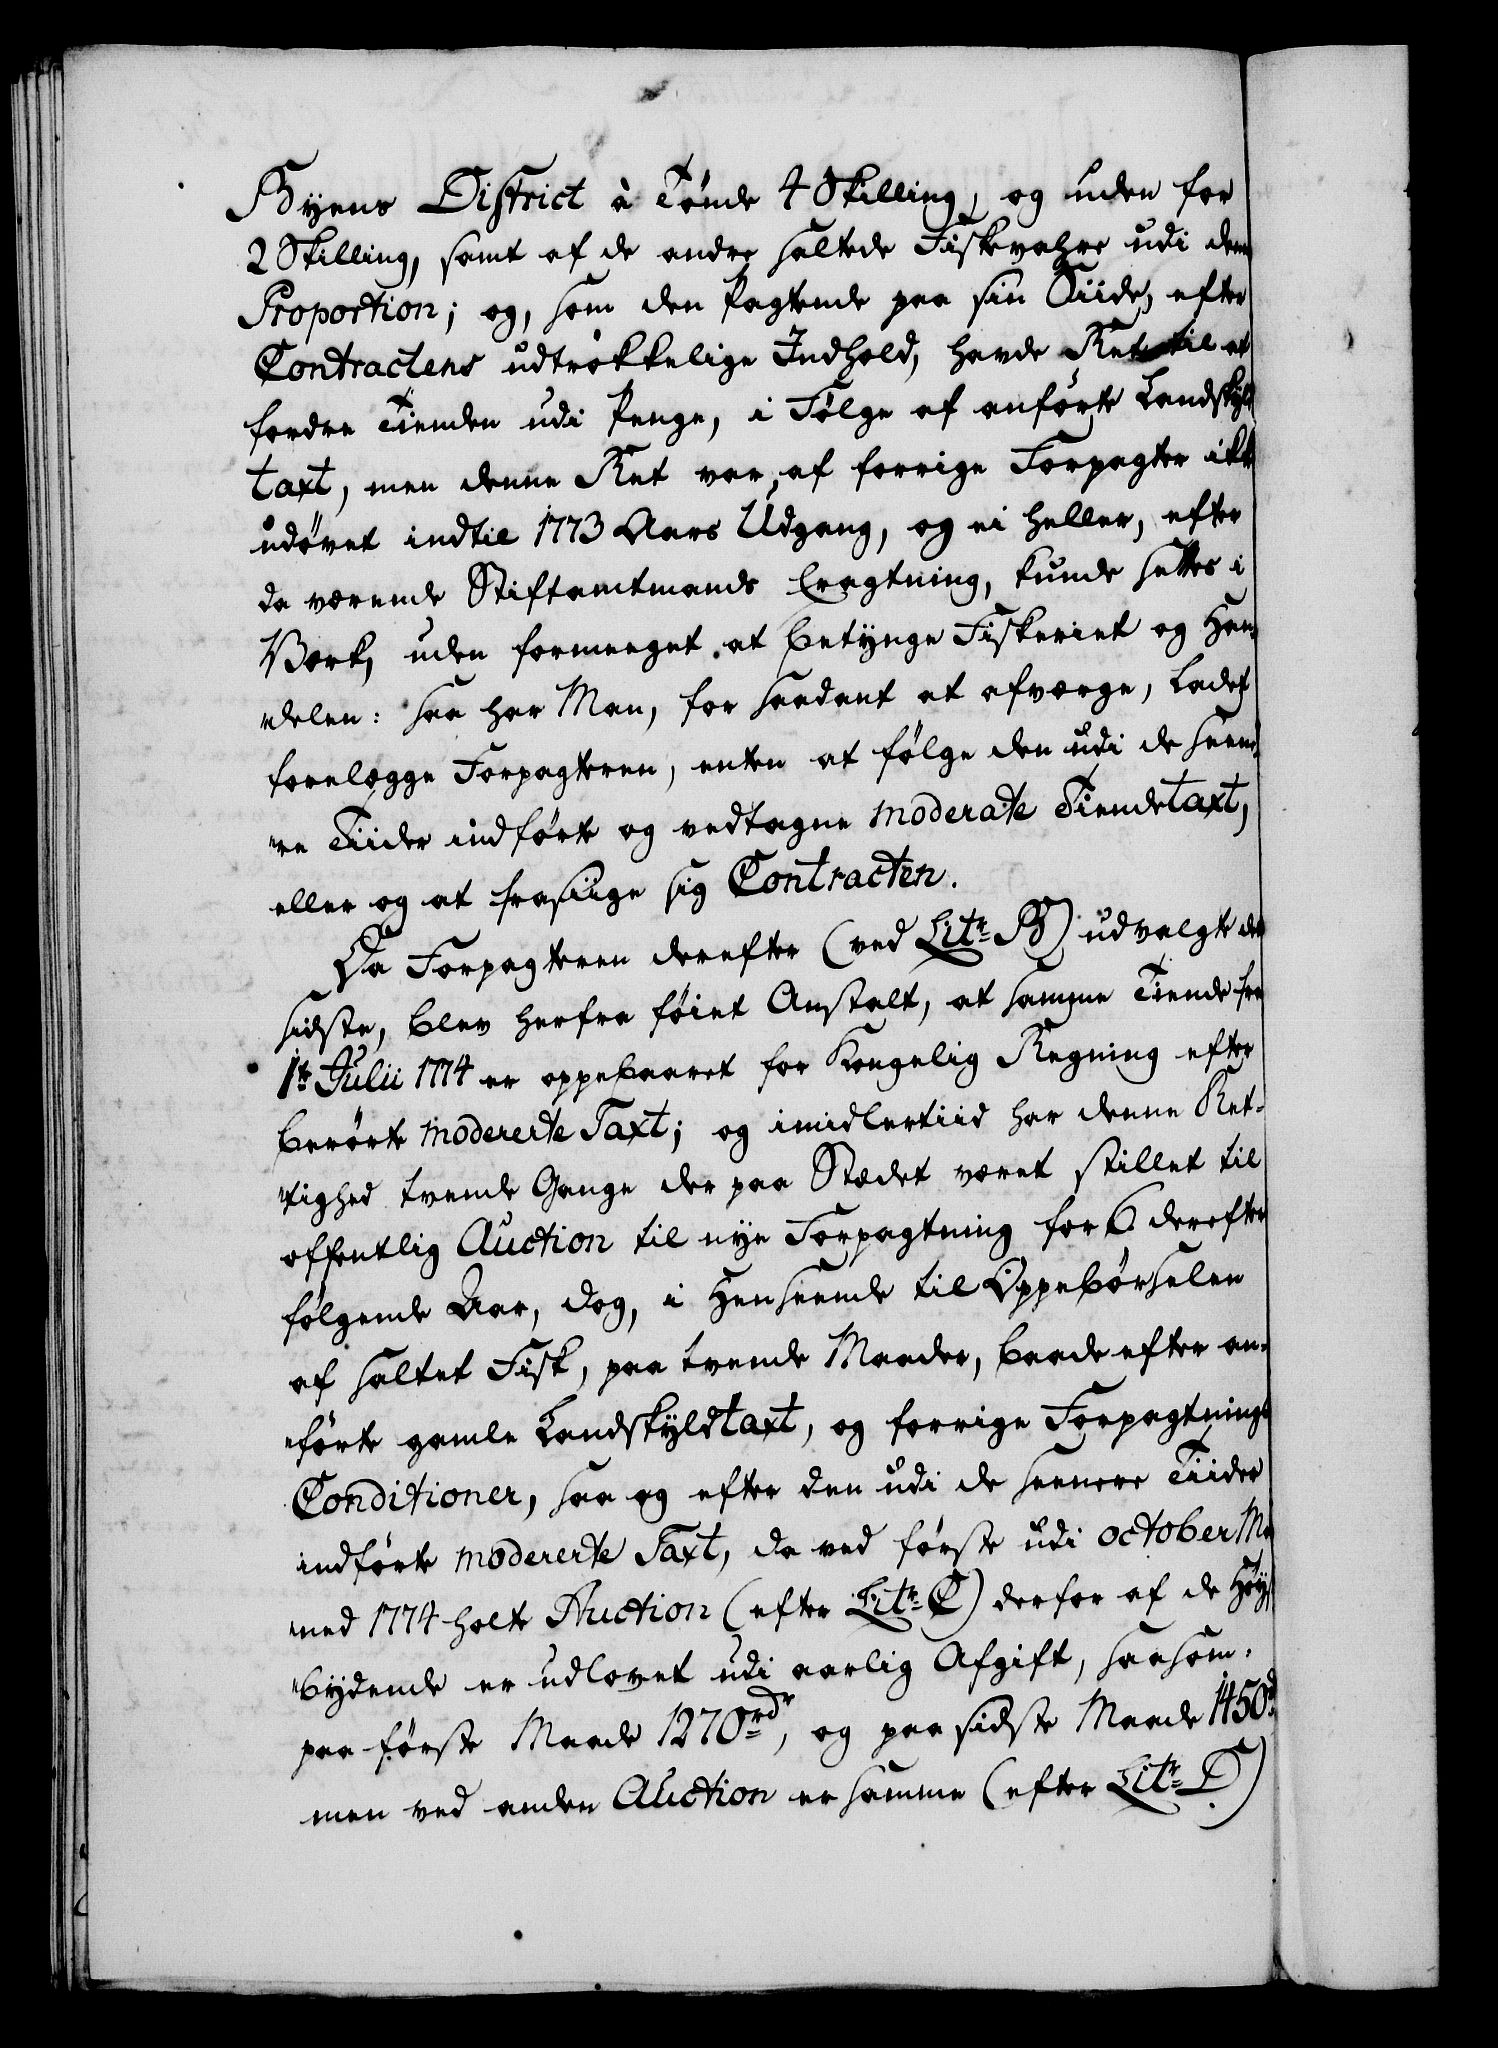 Byens District à Tønde 4 Skilling, og uden for
2 Skilling, samt af de andre saltede Fiskevahre udi den
Proportion; og, som den Pagtende paa sin Siide, efter
Contractens udtrøkkelige Indhold, havde Ret til at
fordre Tienden udi Penge, i Følge af anførte Landskyld
taxt, men denne Ret var af forrige Forpagter ikke
udøvet indtil 1773 Aars Udgang, og ei heller, efter
da værende Stiftamtmands Eragtning, kunde settes i
Værk, uden formeeget at betynge Fiskeriet og Han-
delen: saa har Man, for saadant at afværge, Ladet
forelægge Forpagteren, enten at følge den udi de seene-
re Tiider indførte og vedtagne moderate Tiendetaxt,
eller og at frasiige sig Contracten.
Da Forpagteren derefter (ved Litr. B) udvalgte det
sidste, blev herfra føiet Anstalt, at samme Tiende fra
1te Julii 1774 er oppebaaret for Kongelig Regning efter
berørte modererte Taxt; og imidlertiid har denne Ret-
tighed tvende Gange der paa Stædet været stillet til
offentlig Auction til nye Forpagtning for 6 derefter
følgende Aar, dog, i Henseende til Oppebørselen
af saltet Fisk, paa tvende Maader, baade efter an-
førte gamle Landskyldtaxt, og forrige Forpagtnings
Conditioner, saa og efter den udi de seenere Tiider
indførte modererte Taxt, da ved første udi october Ma-
ned 1774 holte Auction (efter Litr. C) derfor af de Høyst-
bydende er udlovet udi aarlig Afgift, saasom:
paa første Maade 1270 rdr, og paa sidste Maade 1450 rd
men ved anden Auction er samme (efter Litr. D)